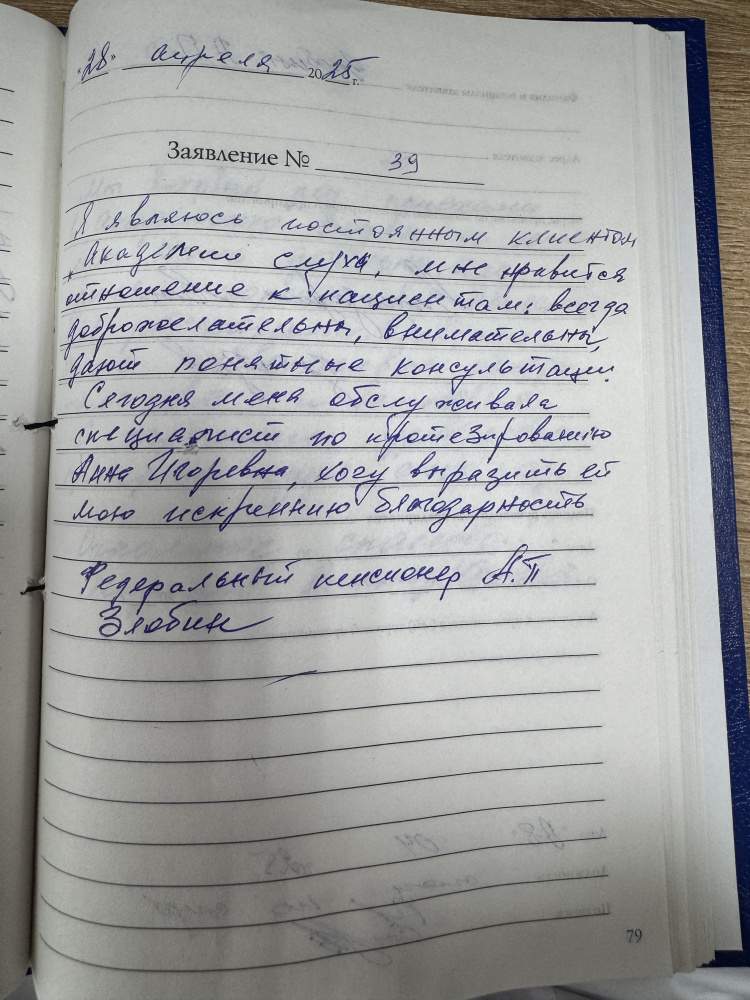 "28" апреля 2025 г.
Заявление № 39
Я являюсь постоянным клиентом
Академии слуха, мне нравится
отношение к пациентам: всегда
доброжелательны, внимательны,
дают понятные консультации.
Сегодня меня обслуживала
специалист по протезированию
Анна Игоревна, хочу выразить ей
мою искреннюю благодарность
Федеральный пенсионер А.П
Злобин
79